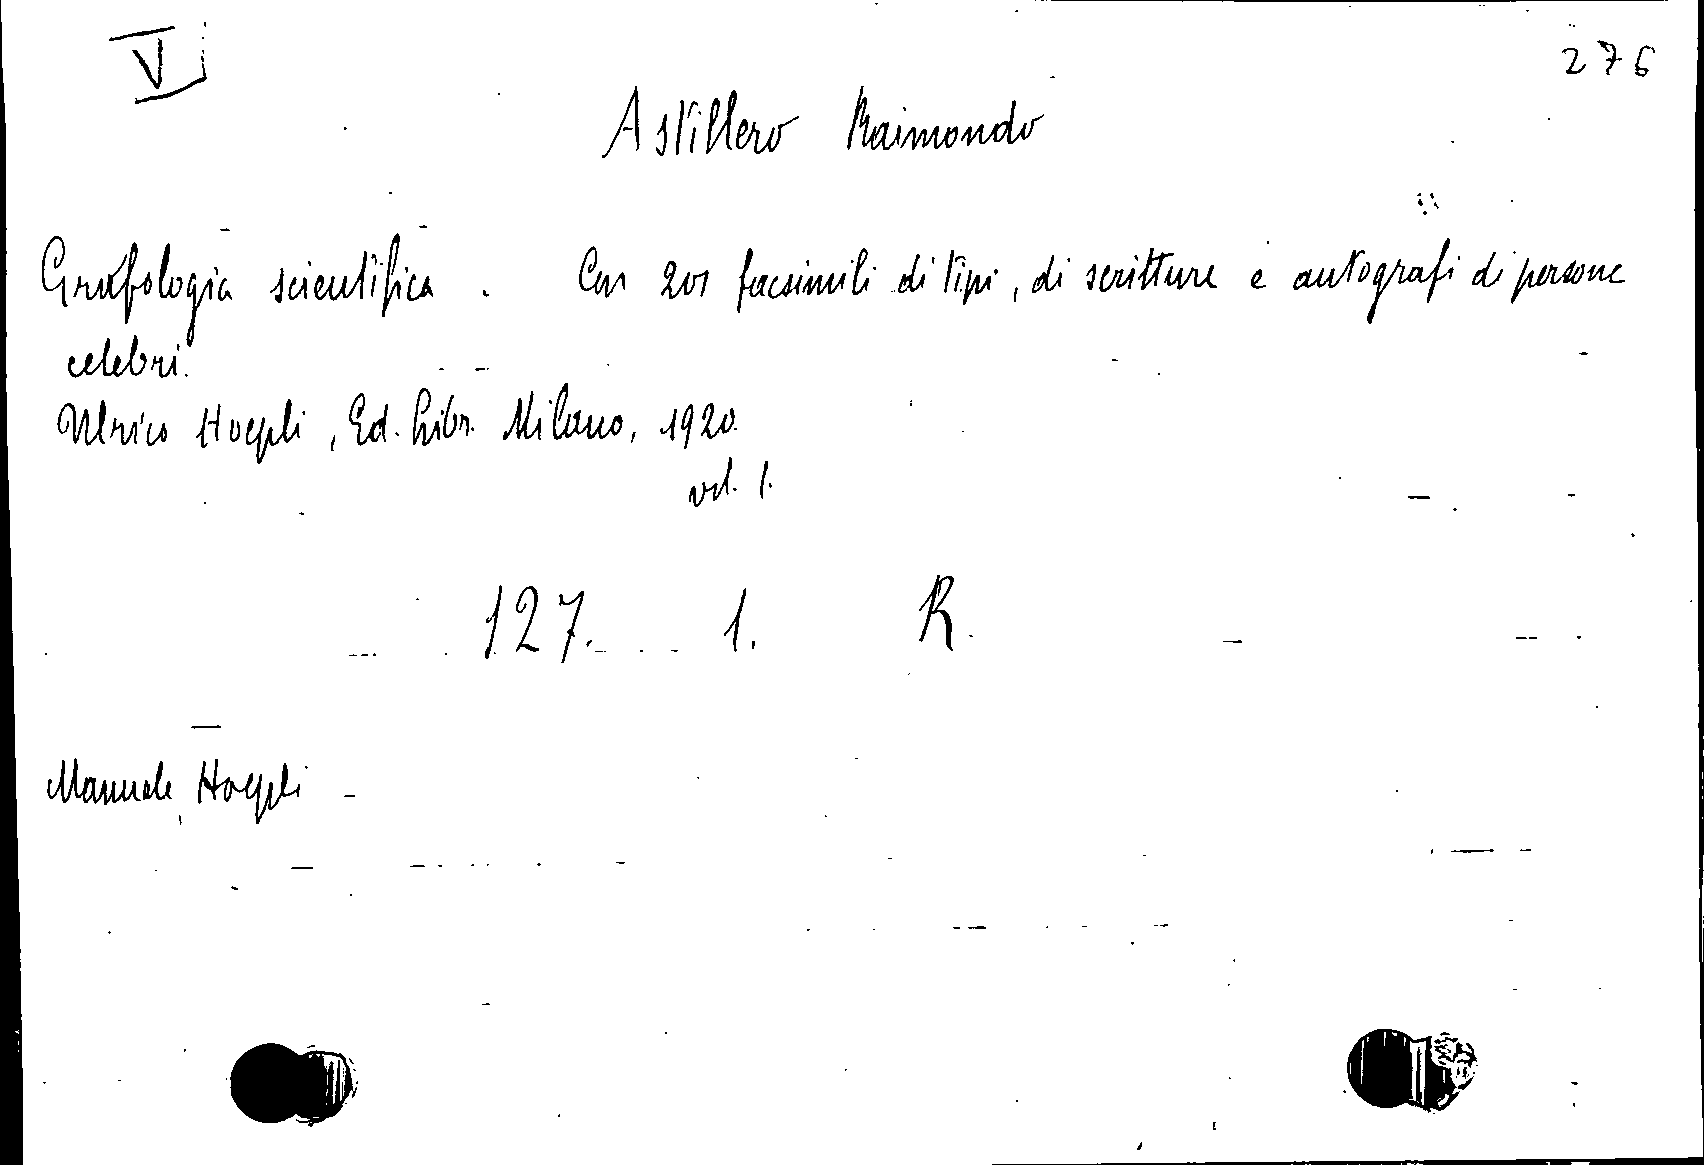 V
276
Astillero Raimondo
Grafologia scientifica. Con 201 facsimili di tipi, di scritture e autografi di persone
celebri.
Ulrico Hoepli, Ed. Libr. Milano, 1920.
vol. 1.
127. 1. R.
Manuale Hoepli